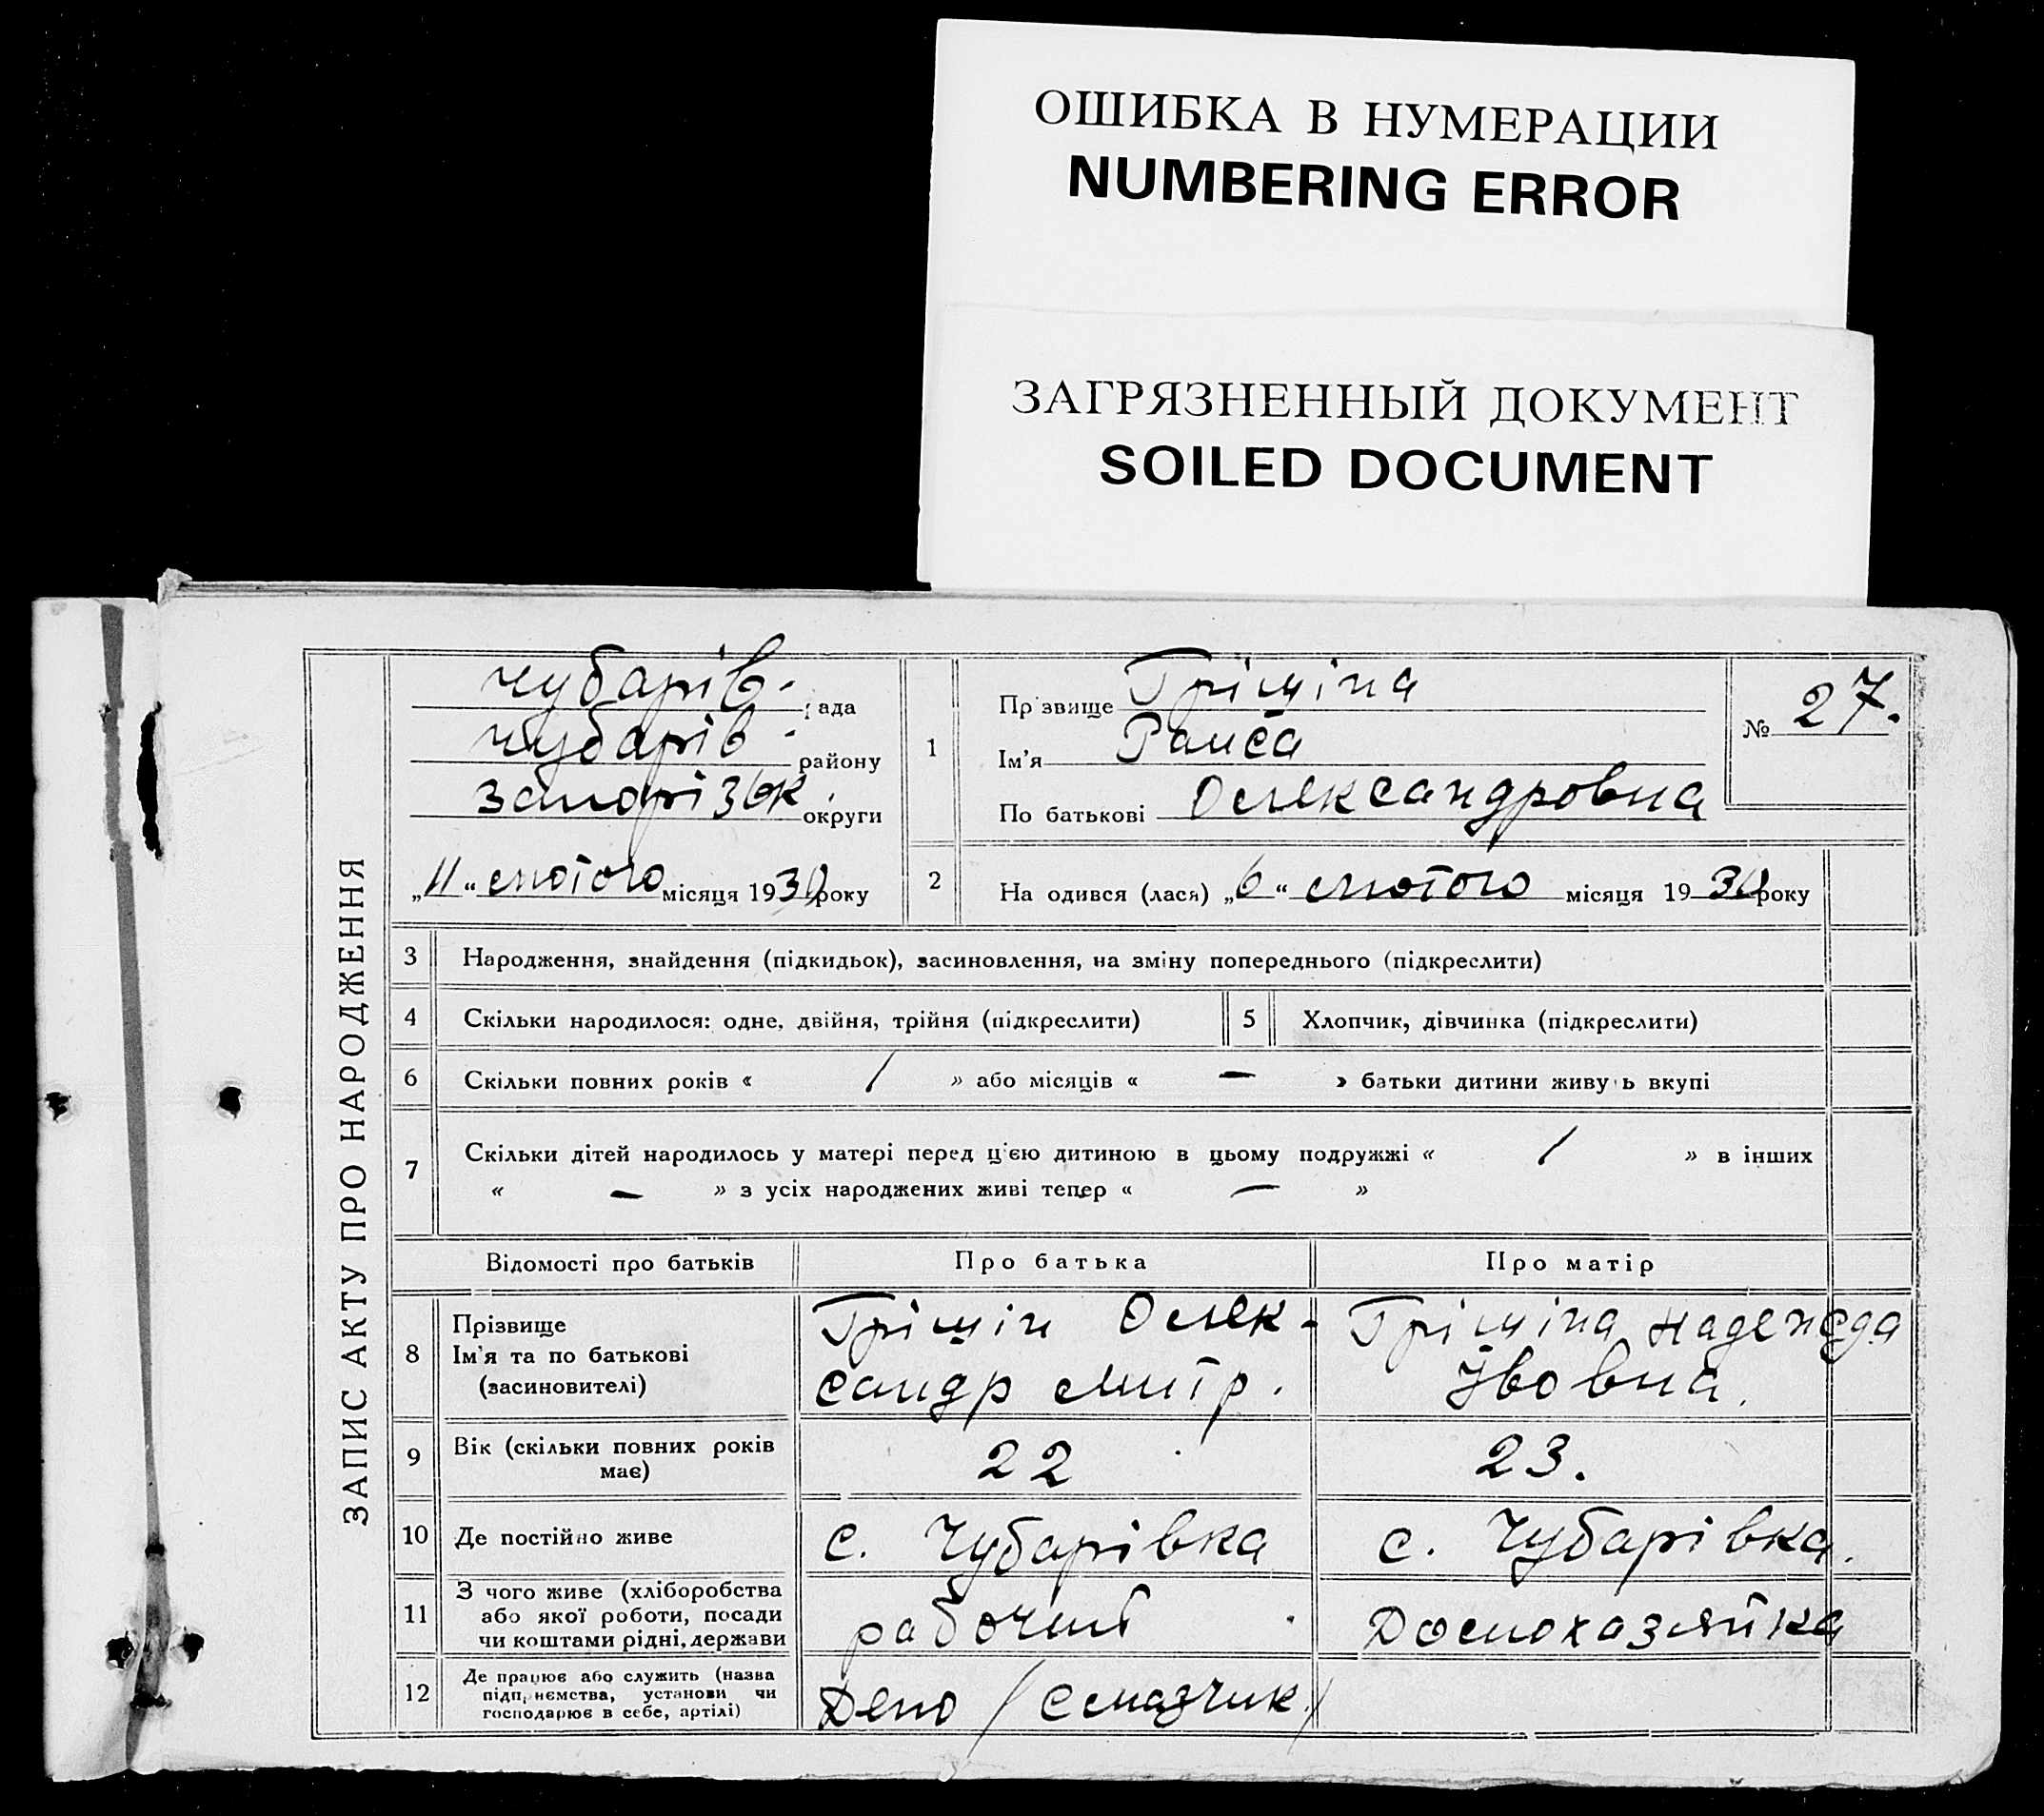 ОШИБКА В НУМЕРАЦИИ
NUMBERING ERROR
ЗАГРЯЗНЕННЫЙ ДОКУМЕНТ
SOILED DOCUMENT
ЗАПИС АКТУ ПРО НАРОДЖЕННЯ
Чубарів- рада
Чубарів- району
Запорізьк. округи
„11“ лютого місяця 1930 року
1
Пр звище Грішіна
Ім'я Раиса
По батькові Олександровна
№ 27.
2 На одився (лася) „6“ лютого місяця 1930 року
3 Народження, знайдення (підкидьок), засиновлення, на зміну попереднього (підкреслити)
4 Скільки народилося: одне, двійня, трійня (підкреслити) 5 Хлопчик, дівчинка (підкреслити)
6 Скільки повних років « / » або місяців « — » батьки дитини живу ь вкупі
7 Скільки дітей народилось у матері перед цією дитиною в цьому подружжі « / » в інших
« — » з усіх народжених живі тепер « — »
Відомості про батьків Про батька Про матір
8 Прізвище
Ім'я та по батькові
(засиновителі)
Грішін Олек-
сандр Митр.
Грішіна Надежда
Львовна.
9 Вік (скільки повних років
має)
22
23.
10 Де постійно живе с. Чубарівка с. Чубарівка.
11 З чого живе (хліборобства
або якої роботи, посади
чи коштами рідні, держави
рабочий
Домохазяйка
12 Де працює або служить (назва
підприємства, установи чи
господарює в себе, артілі)
Депо / Смазчик./